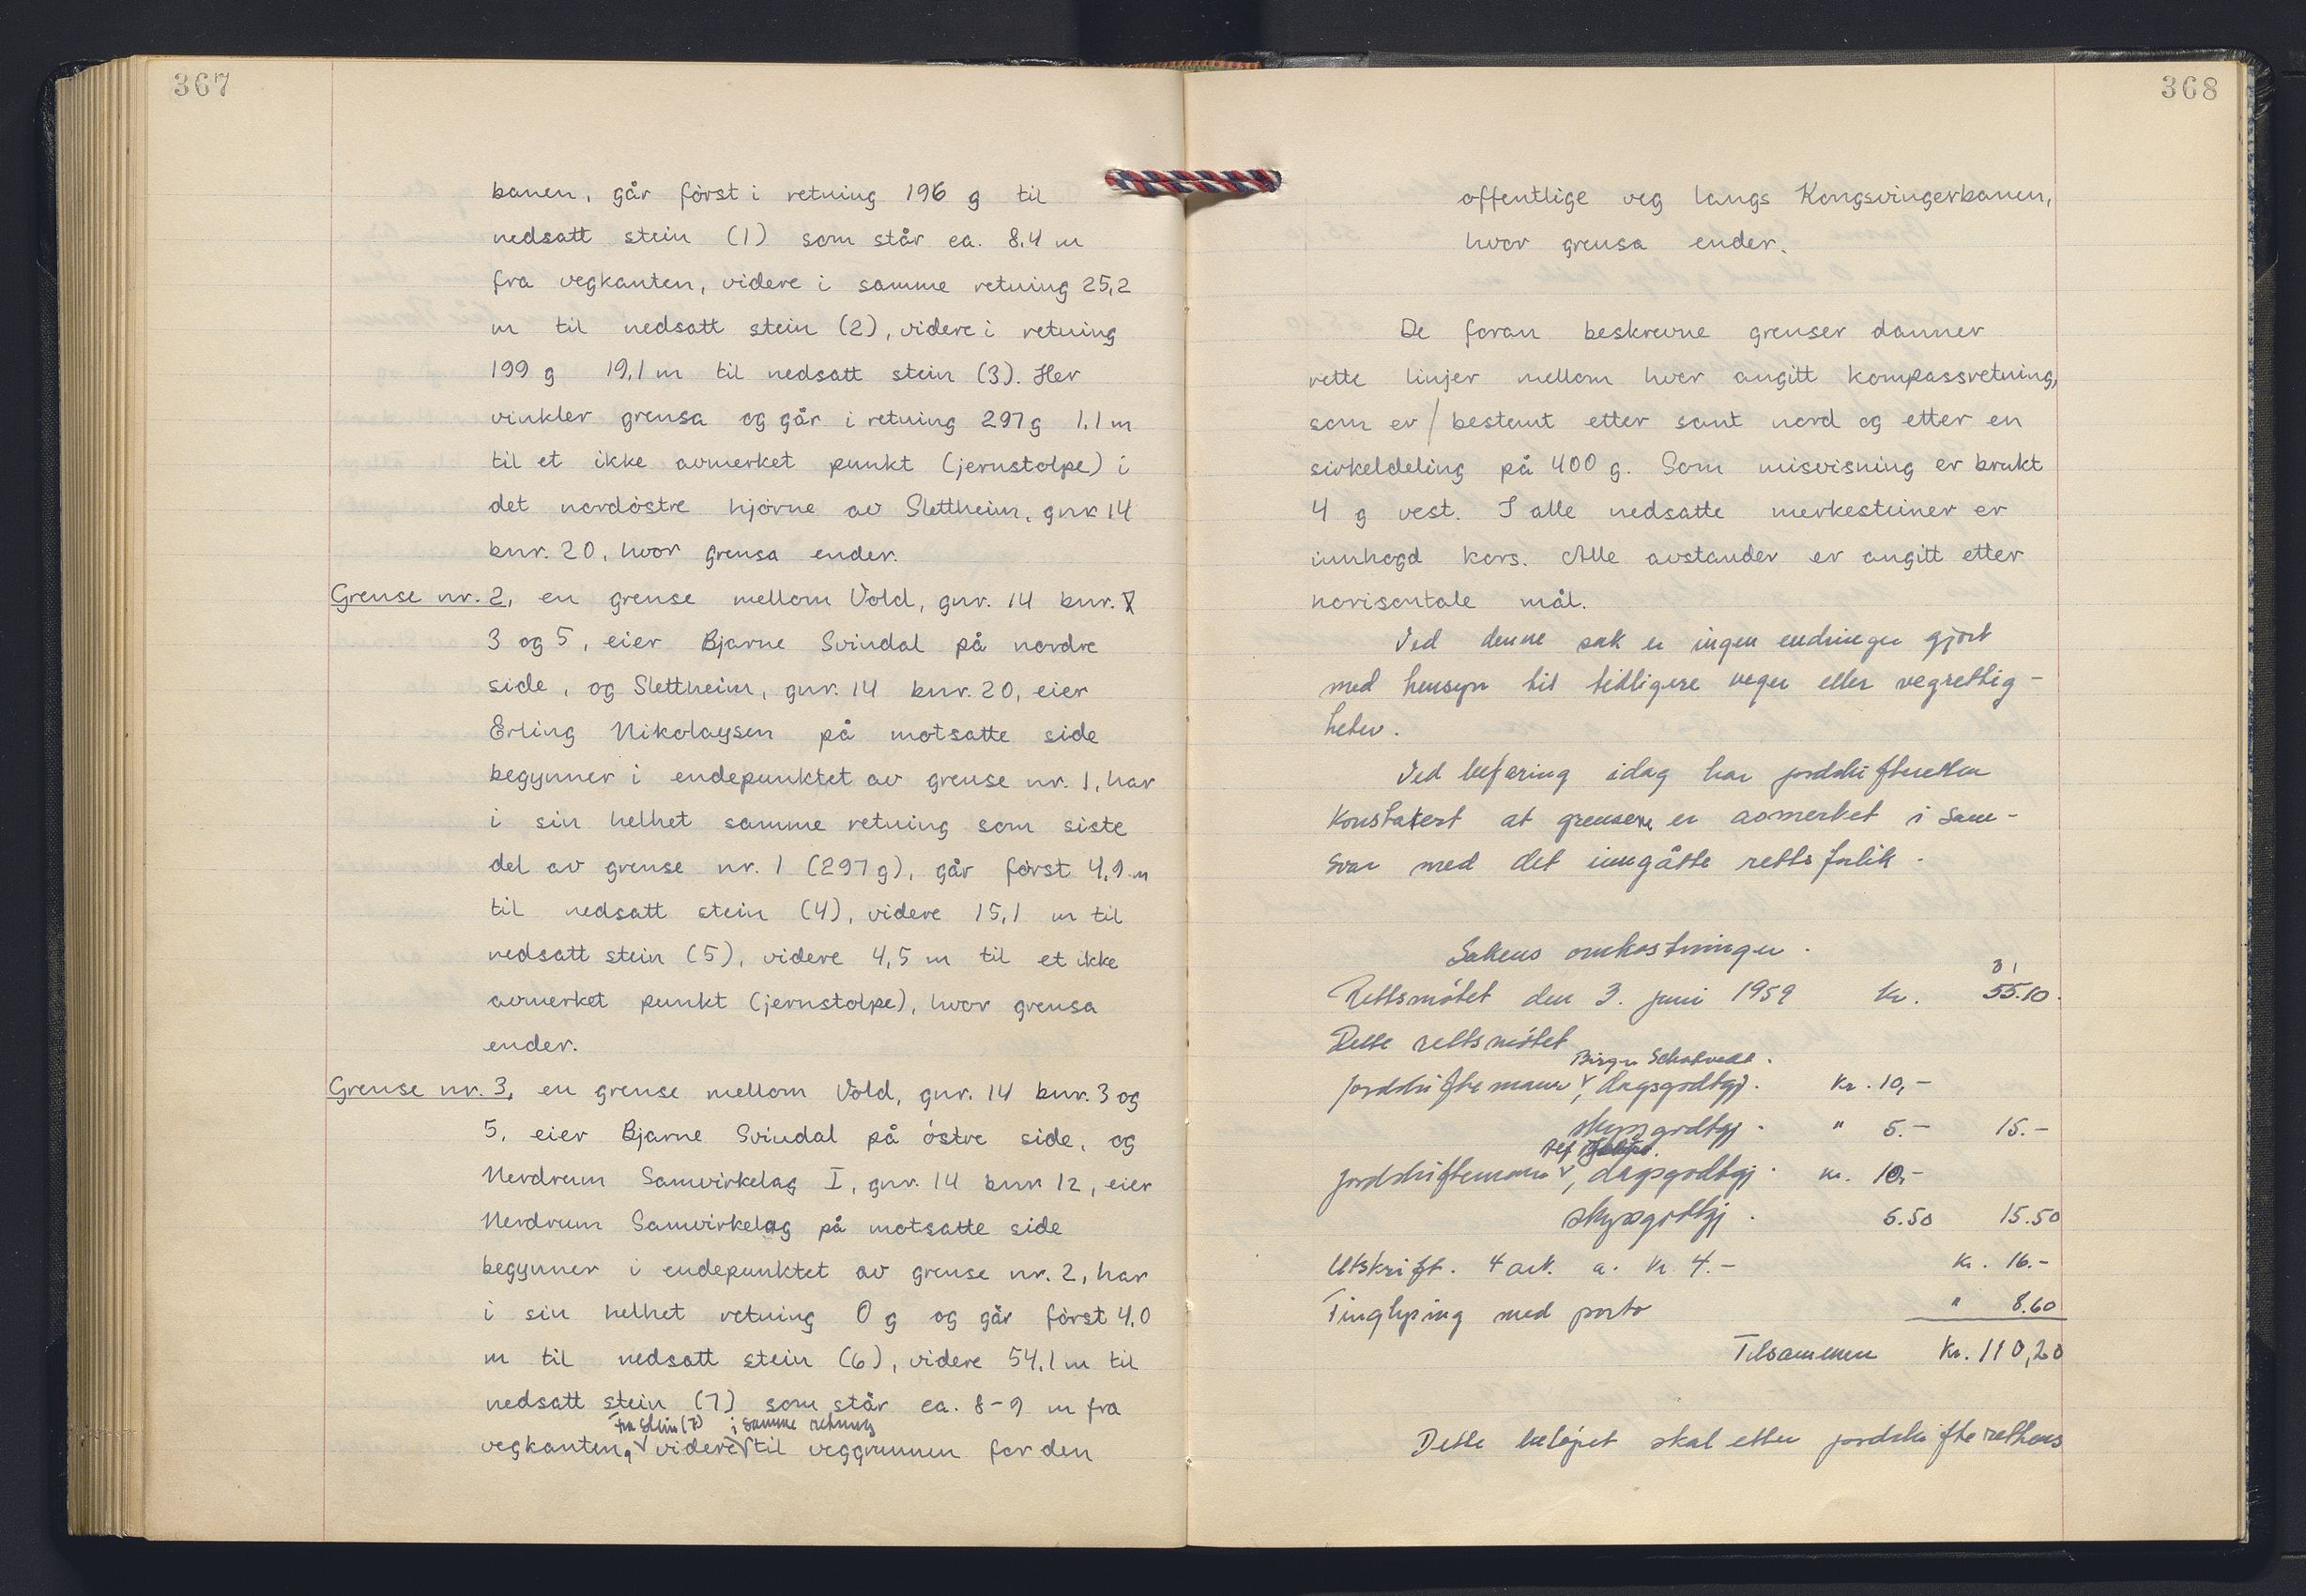 367
banen, går først i retning 196 g til
nedsatt stein (1) som står ca. 8,4 m
fra vegkanten, videre i samme retning 25,2
m til nedsatt stein (2), videre i retning
199 g 19,1 m til nedsatt stein (3). Her
vinkler grensa og går i retning 297 g 1,1 m
til et ikke avmerket punkt (jernstolpe) i
det nordøstre hjørne av Slettheim, gnr 14
bnr. 20, hvor grensa ender.
Grense nr. 2, en grense mellom Vold, gnr. 14 bnr.
3 og 5, eier Bjarne Svindal på nordre
side, og Slettheim, gnr. 14 bnr. 20, eier
Erling Nikolaysen på motsatte side
begynner i endepunktet av grense nr. 1, har
i sin helhet samme retning som siste
del av grense nr. 1 (297 g), går først 4,9 m
til nedsatt stein (4), videre 15,1 m til
nedsatt stein (5), videre 4,5 m til et ikke
avmerket punkt (jernstolpe), hvor grensa
ender.
Grense nr. 3, en grense mellom Vold, gnr. 14 bnr. 3 og
5, eier Bjarne Svindal på østre side, og
Nerdrum Samvirkelag I, gnr. 14 bnr 12, eier
Nerdrum Samvirkelag på motsatte side
begynner i endepunktet av grense nr. 2, har
i sin helhet retning 0 g og går først 4,0
m til nedsatt stein (6), videre 54,1 m til
nedsatt stein (7) som står ca. 8-9 m fra
fra stein (7) i samme retning
vegkanten, videre til veggrunnen for den
368
offentlige veg langs Kongsvingerbanen,
hvor grensa ender.
De foran beskrevne grenser danner
rette linjer mellom hver angitt kompassretning,
som er / bestemt etter sant nord og etter en
sirkeldeling på 400 g. Som misvisning er brukt
4 g vest. I alle nedsatte merkesteiner er
innhogd kors. Alle avstander er angitt etter
horisontale mål.
Ved denne sak er ingen endringer gjort
med hensyn til tidligere veger eller vegrettig-
heter.
Ved befaring idag har jordskifteretten
konstatert at grensene er avmerket i sam-
svar med det inngåtte rettsforlik.
Sakens omkostninger.
31
Rettsmøtet den 3. juni 1959 Kr. 55.10.
Dette rettsmøtet
Birger
jordskiftemann, dagsgodtgj. Kr. 10,-
skyssgodtgj. " 5.- 15.-
jordskiftemann, dagsgodtgj. Kr. 10,-
skyssgodtgj. 5.50 15.50
Utskrift. 4 ark. a. Kr 4.- Kr. 16.-
Tinglysing med porto " 8.60
Tilsammen Kr. 110,20
Dette beløpet skal etter jordskifterettens